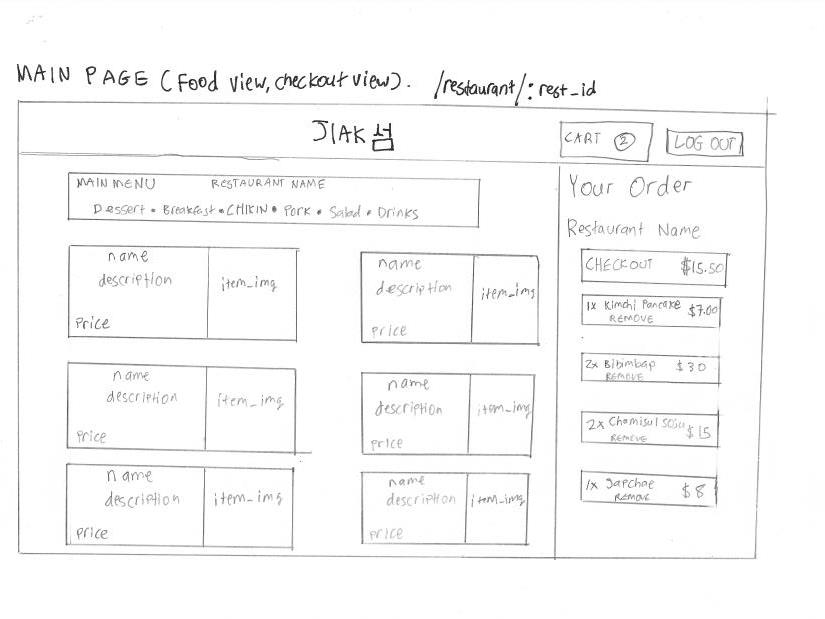 MAIN PAGE (Food view, checkout view). /restaurant/:rest_id
JIAK섬
CART 2
LOG OUT
MAIN MENU RESTAURANT NAME
Dessert • Breakfast • CHIKIN • Pork • Salad • Drinks
name
description
item_img
Price
name
description
item_img
Price
name
description
item_img
Price
name
description
item_img
Price
name
description
item_img
Price
name
description
item_img
Price
Your Order
Restaurant Name
CHECKOUT $15.50
1x Kimchi Pancake $7.00
REMOVE
2x Bibimbap $30
REMOVE
2x Chamisul Soju $15
REMOVE
1x Japchae $8
REMOVE